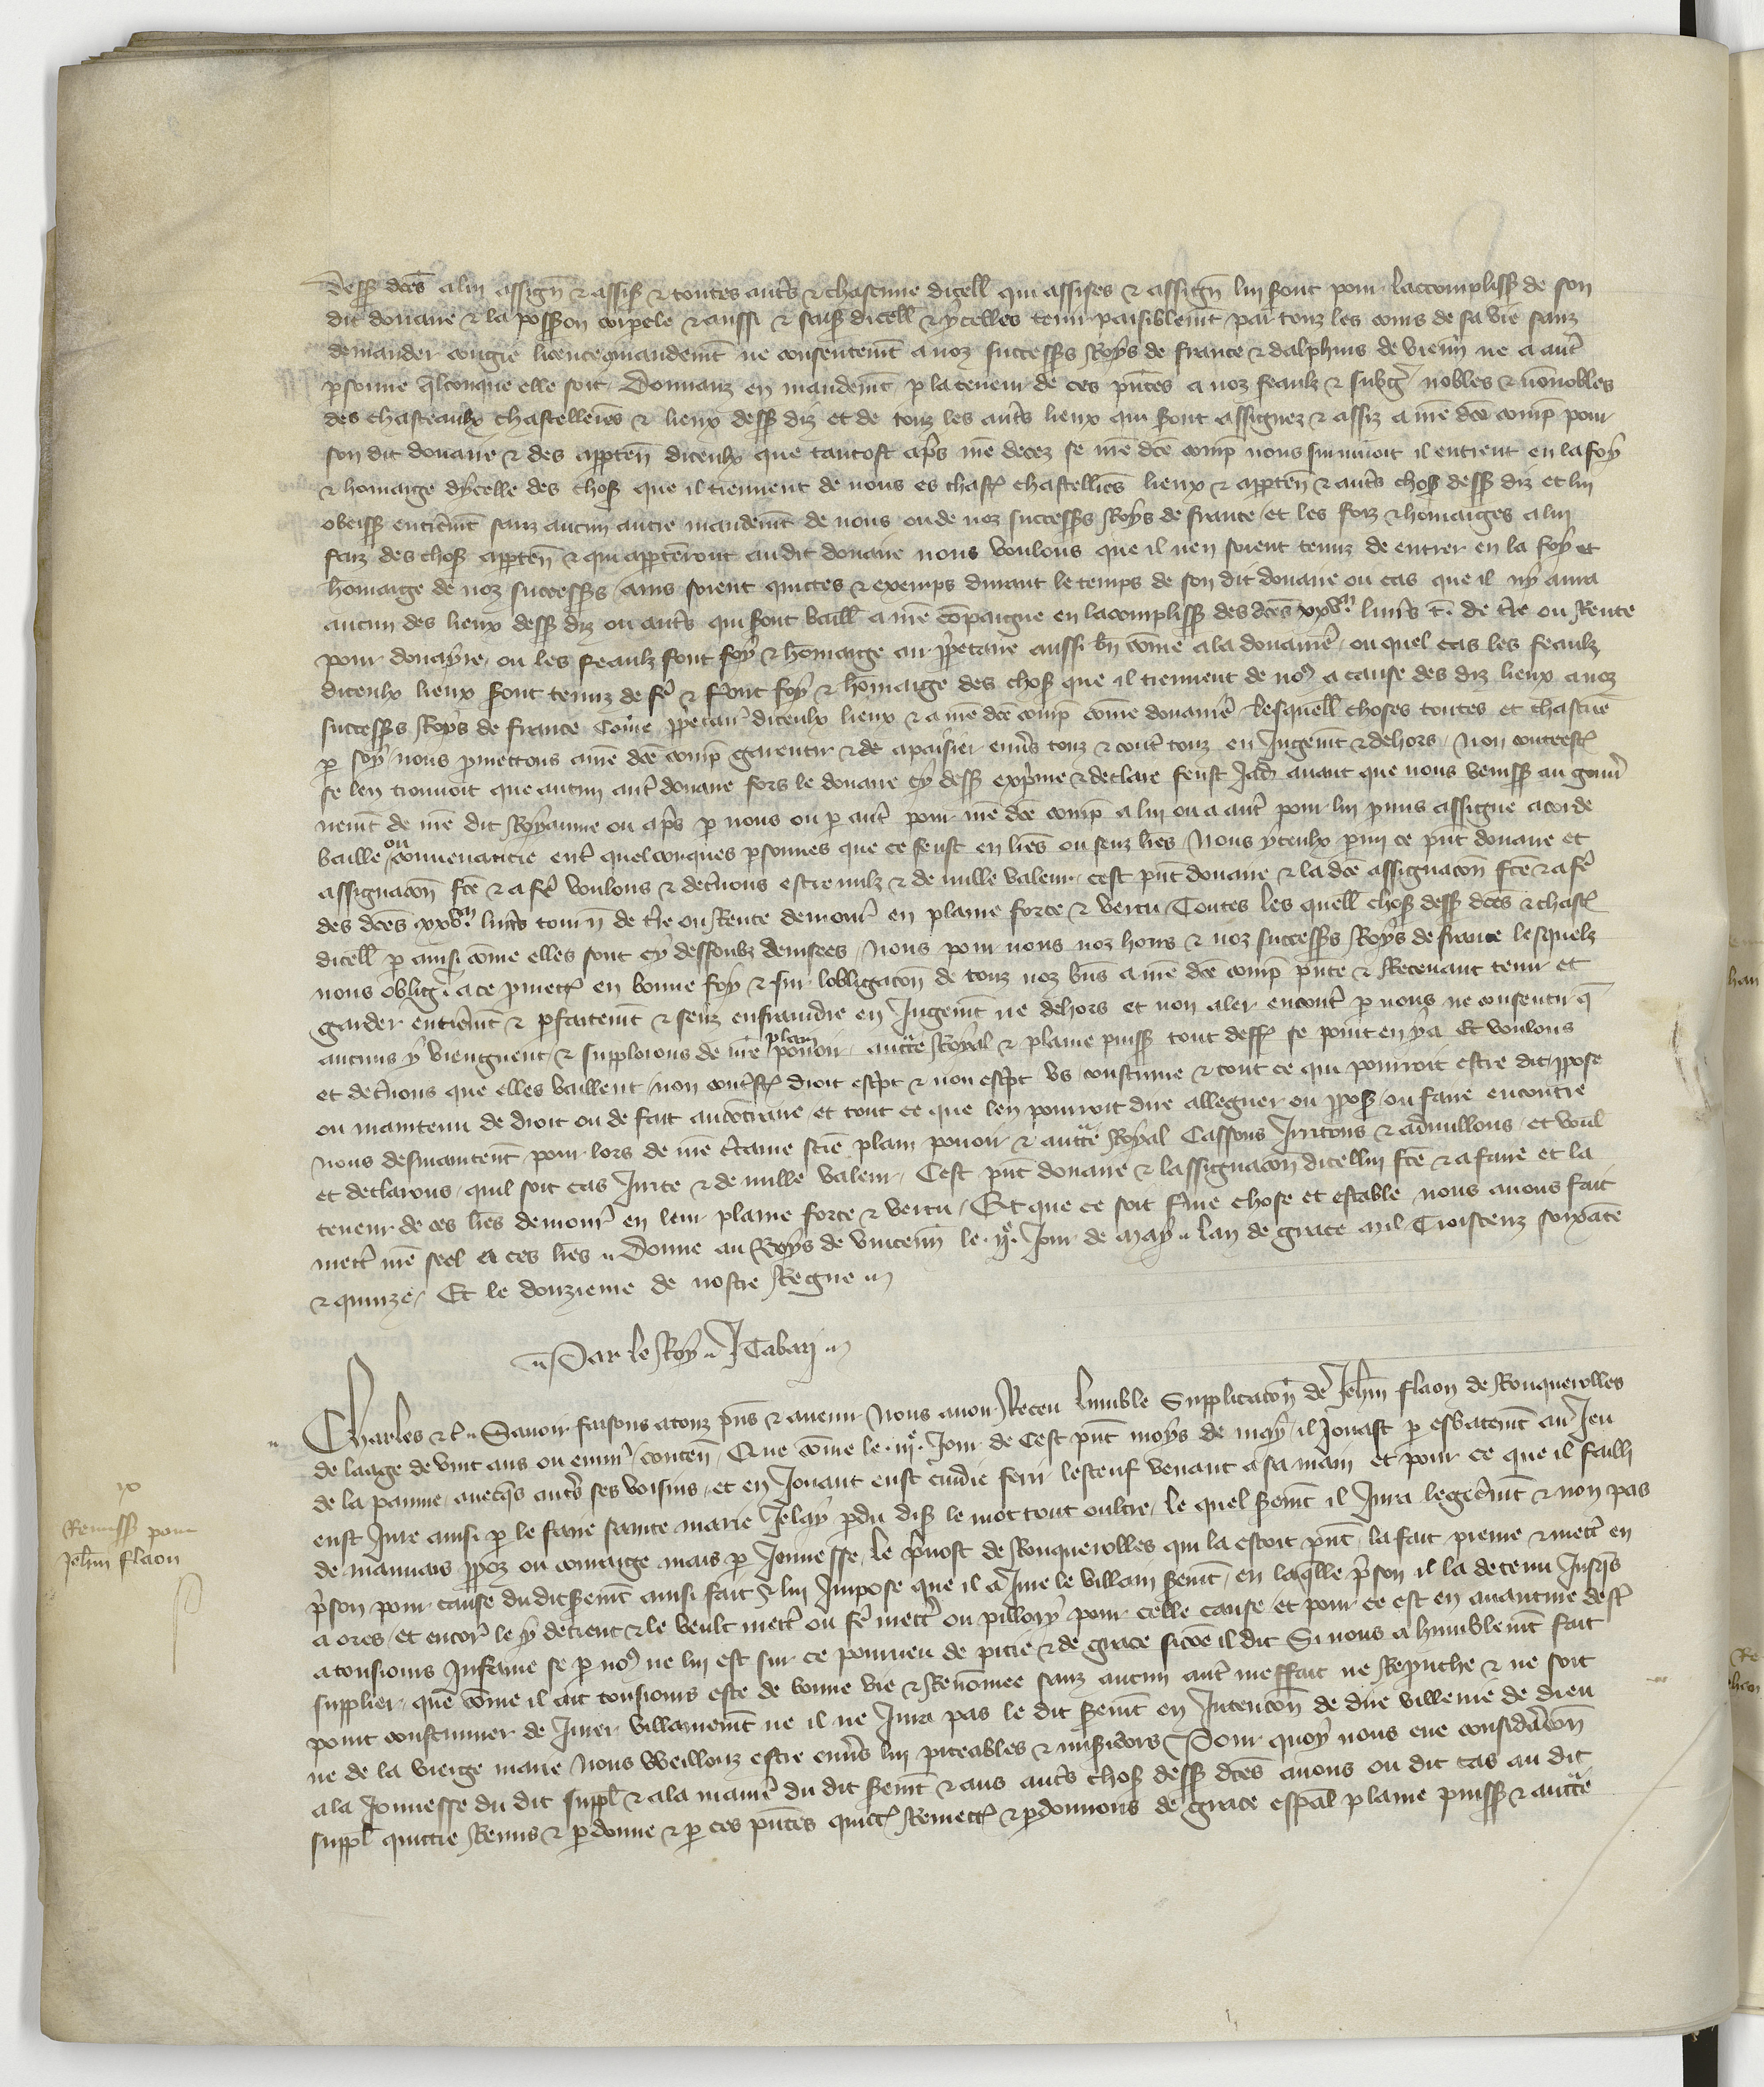 dess dces a lui assign & assis & toutes autres & chascune dicell qui assises & assign lui sont pour laccompliss de son
dit douaire & la posson corpele & aussi & fruis dicell & ycelles tenir paisiblemt par touz les cours de sa vie sanz
demander congie licence mandemt ne consentemt a noz successrs Roys de france & dalphins de vienn ne a autre
psonne qlconque elle soit Donnanz en mandemt p la teneur de ces pntes a noz feaulx & subgz nobles & nonnobles
des chasteaulx chastelleries & lieux dess diz et de touz les autres lieux qui sont assignez & assiz a nre dce comp pour
son dit douaire & des apprten diceulx que tantost apres nre decez se nre dce comp nous survivoit il entrent en la foy
& homaige dycelle des chos que il tiennent de nous es chast chastellies lieux & apprten & autres chos dess diz et lui
obeiss entieremt sanz aucun autre mandemt de nous ou de noz successrs Roys de france et les foiz & homaiges a lui
faiz des chos apprten & qui apprtenront audit douaire nous voulons que il nen soient tenuz de entrer en la foy et
homaige de noz successrs ains soient quictes & exemps durant le temps de son dit douaire ou cas que il ny aura
aucun des lieux dess diz ou autres qui sont baill a nre compaigne en lacompliss des dces xxvm livres t. de tre ou Rente
pour douayre ou les feaulz font foy & homaige au pprietaire aussi bn come a la douairiere ou quel cas les feaulz
diceulx lieux sont tenuz de fe & feront foy & homaige des chos que il tiennent de nos a cause des diz lieux a noz
successrs Roys de france come pprietaires diceulx lieux & a nre dce comp come douairiere Lesquell choses toutes et chascune
p soy nous pmettons a nre dce comp garentir & de apaisier envers touz & contre touz en Jugemt & dehors Non contrest
se len trouvoit que aucun autre douaire fors le douaire cy dess expme & declare feust Jad avant que nous venissi au gouver
nemt de nre dit Royaume ou apres p nous ou p autre pour nre dce comp a lui ou a autre pour lui pmis assigne acorde
baille ou convenancie entre quelconques psonnes que ce feust en lres ou senz lres Nous yceulx pmi ce pnt douaire et
assignacon fce & a fe voulons & decrnons estre nulz & de nulle valeur cest pnt douaire & la dce assignacon fce & a fe
des dces xxvm livres tourn de tre ou Rente demourer en plaine force & vertu Toutes les quell chos dess dces & chast
dicell p ainsi come elles sont cy dessoubz devisees Nous pour nous noz hoirs & noz successrs Roys de france lesquelz
nous oblig a ce pmett en bonne foy & sur lobligacon de touz noz bns a nre dce comp pnte & Recevant tenir et
garder entieremt & pfaitemt & senz enfraindre en Jugemt ne dehors et non aler encontre p nous ne consentir q
aucuns y viengnent & supploions de nre plain pouoir auctte Royal & plaine puiss tout deff se point en y a Et voulons
et decrnons que elles vaillent non contrest droit escript & non escript us coustume & tout ce qui pourroit estre dit ppose
ou maintenu de droit ou de fait aucontraire et tout ce que len pourroit dire alleguer ou ppos ou faire encontre
nous desmaintent pour lors de nre ctaine scie plain pouoir & auctte Royal Cassons Irritons & adnullons et voul
et declarons quil soit cas Irrite & de nulle valeur Cest pnt douaire & lassignacon dicellui fce & a faire et la
teneur de ces lres demourer en leur plaine force & vertu Et que ce soit ferme chose et estable nous avons fait
mettre nre seel a ces lres Donne au Boys de vincenn le ije Jour de may lan de grace mil Troiscenz soixate
& quinze Et le douzieme de nostre Regne
Par le Roy J Tabari
Charles &c Savoir faisons a touz pns & avenir Nous avoir Receu lumble Supplicacon de Jehn flaon de Rouquerolles
de laage de vint ans ou environ conten Que come le iije Jour de cest pnt moys de may il Jouast p esbatemt au Jeu
de la paume avecques autres ses voisins et en Jouant eust cuidie ferir lesteuf venant a sa main et pour ce que il failli
eust Jure ainsi p le faire sainte marie Je lay pdu dis le mot tout oultre Le quel sermt il Jura legieremt & non pas
de mauvais ppoz ou couraige mais p Jeunesse Le pvost de Rouquerolles qui la estoit pnt la fait prenre & mettre en
prison pour cause dudit sermt ainsi fait & lui Impose que il a Jure le villain sermt en laqlle prison il la detenu Jusques
a ores et encore le y detient & le veult mettre ou fe mettre ou pillory pour celle cause et pour ce est en avanture dest
a tousiours Infame se p nos ne lui est sur ce pourveu de pitie & de grace si come il dit Si nous a humblemt fait
supplier que come il ait tousiours este de bonne vie & Renomee sanz aucun autre meffait ne Reprouche & ne soit
point coustumier de Jurer villainemt ne il ne Jura pas le dit sermt en Intencon de dire villenie de dieu
ne de la vierge marie Nous vueillonz estre envers lui piteables & misicors Pour quoy nous eue consideracon
a la Jounesse du dit suppl & a la maniere du dit sermt & aus autres chos dess dces avons ou dit cas au dit
suppl quictie Remis & pdonne & p ces pntes quict Remett & pdonnons de grace espal plaine puiss & auctte
ix
Remiss pour
Jehm flaon